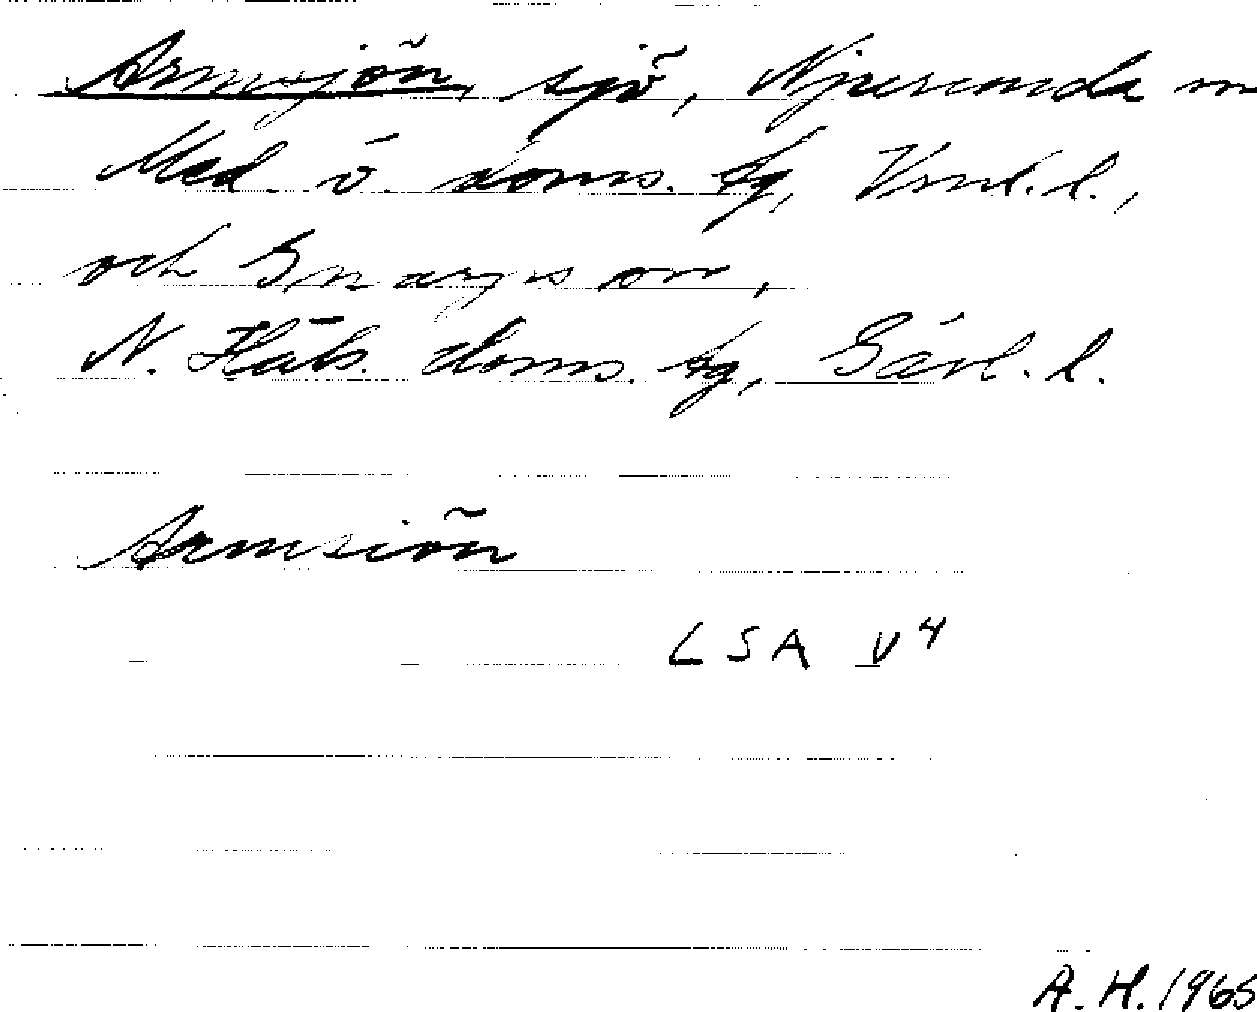 Armsjön, sjö, Njurunda sn
Med. ö. doms. tg, Vnl. l.,
och Gnarps sn,
N. Häls. doms. tg, Gävl. l.
Armsiön
LSA V4
A.H. 1965